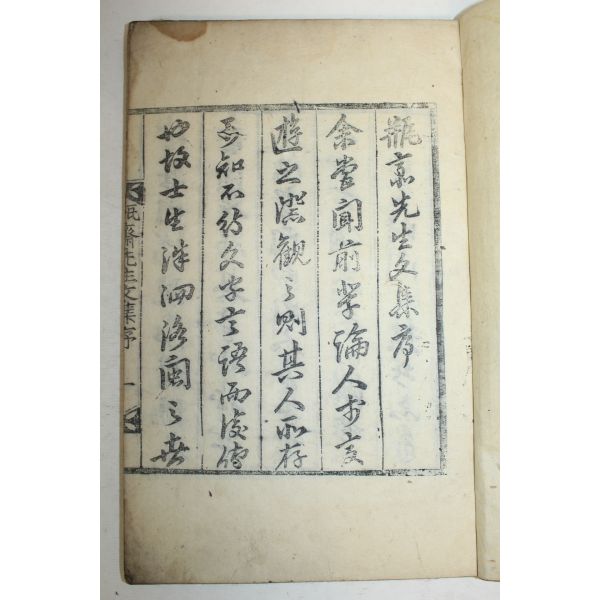 瓶齋先生文集序
余嘗聞前輩論人於交
遊之際觀之則其人所存
知不待文字言語而後傳
也故士生洙泗洛閩之世
瓶齋先生文集序 一